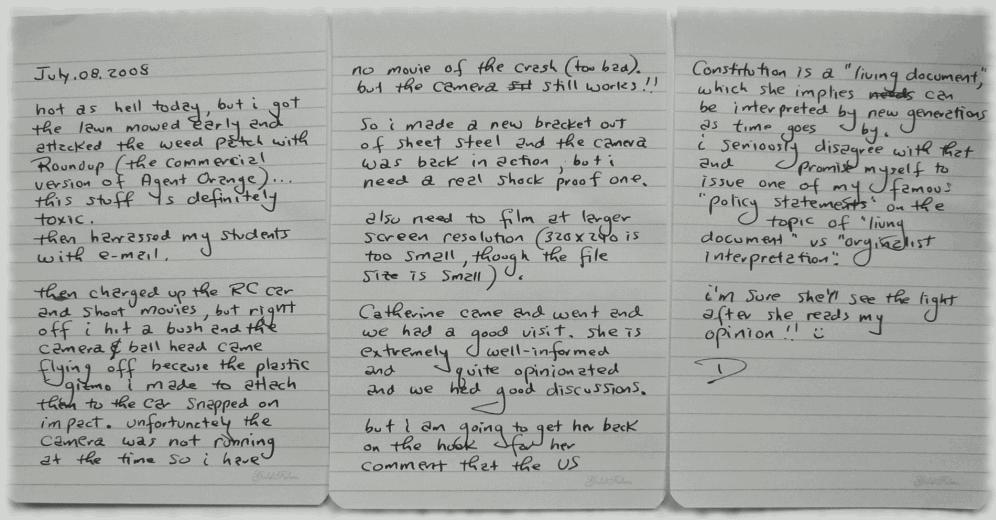 July.08.2008
hot as hell today, but i got
the lawn mowed early and
attacked the weed patch with
Roundup (the commercial
version of Agent Orange)...
this stuff is definitely
toxic.
then harrassed my students
with e-mail.
then charged up the RC car
and shoot movies, but right
off i hit a bush and the
camera & ball head came
flying off because the plastic
gizmo i made to attach
them to the car snapped on
impact. unfortunately the
camera was not running
at the time so i have
no movie of the crash (too bad).
but the camera still works!!
So i made a new bracket out
of sheet steel and the camera
was back in action, but i
need a real shock proof one.
also need to film at larger
screen resolution (320x240 is
too small, though the file
size is small).
Catherine came and went and
we had a good visit. she is
extremely well-informed
and quite opinionated
and we had good discussions.
but i am going to get her back
on the hook for her
comment that the US
Constitution is a "living document,"
which she implies can
be interpreted by new generations
as time goes by.
i seriously disagree with that
and promise myself to
issue one of my famous
"policy statements" on the
topic of "living
document" vs "orginalist
interpretation".
i'm sure she'll see the light
after she reads my
opinion !! :)
D